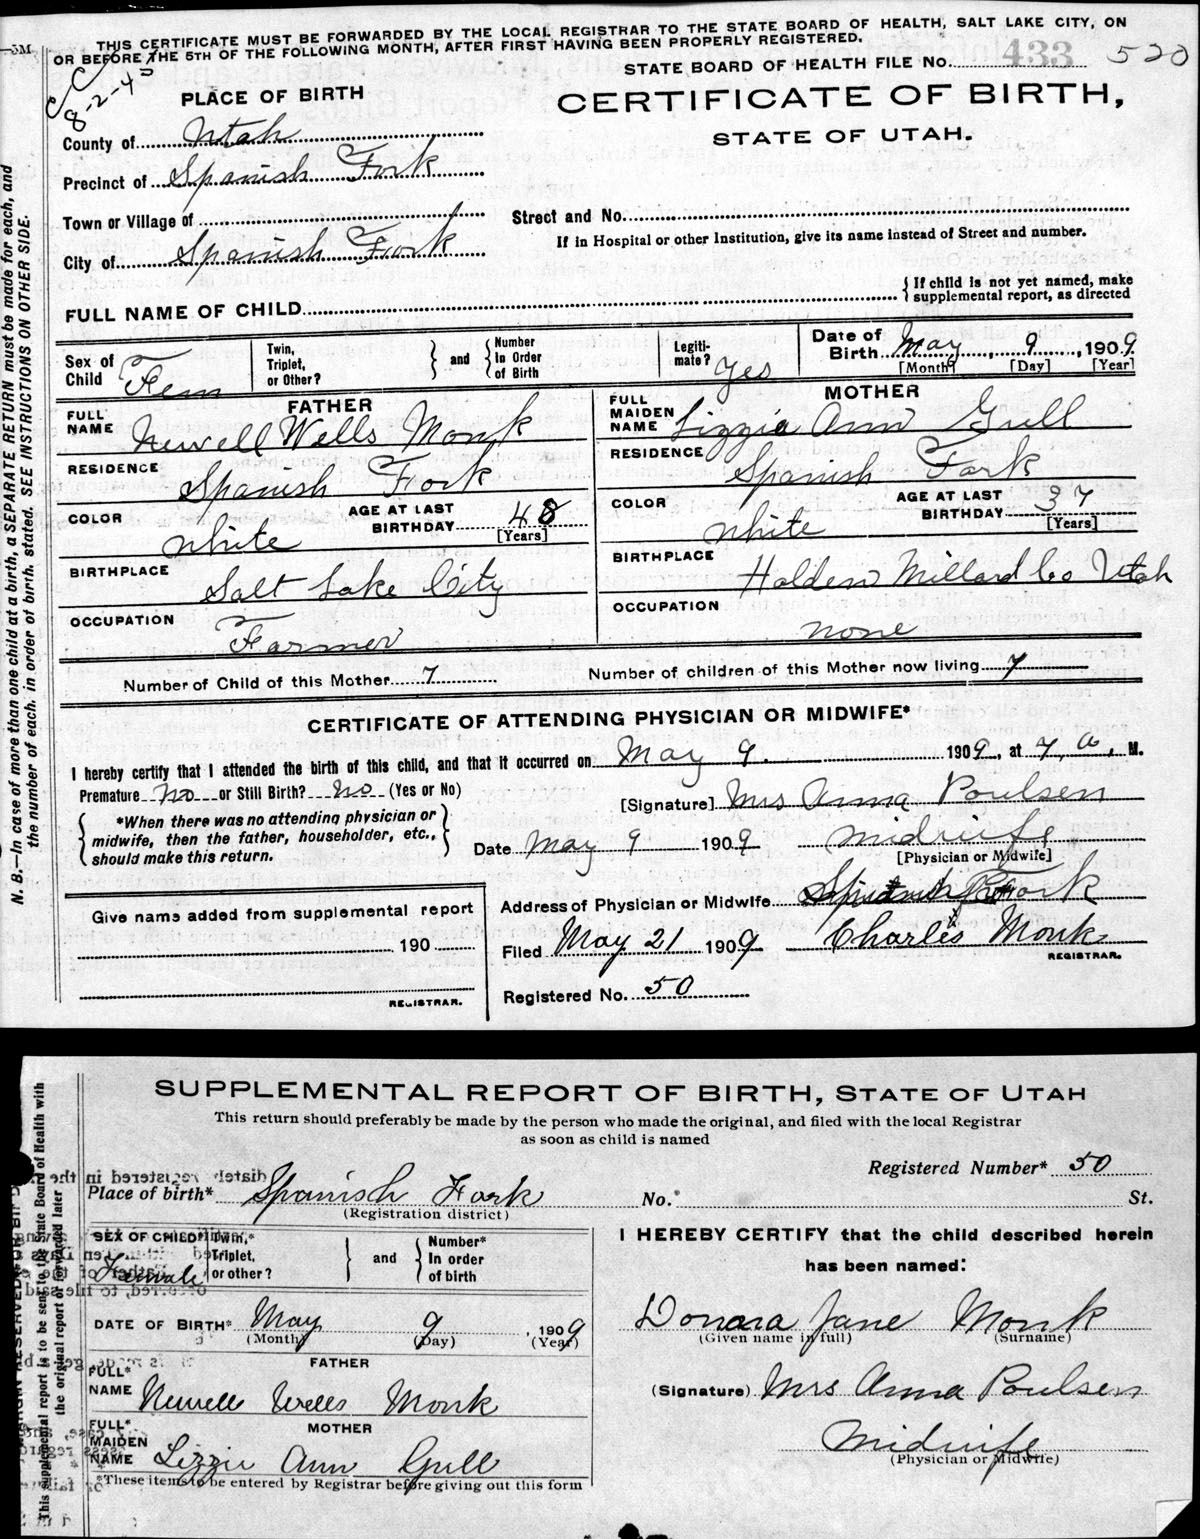 THIS CERTIFICATE MUST BE FORWARDED BY THE LOCAL REGISTRAR TO THE STATE BOARD OF HEALTH, SALT LAKE CITY, ON
OR BEFORE THE 5TH OF THE FOLLOWING MONTH, AFTER FIRST HAVING BEEN PROPERLY REGISTERED.
—5M
CC
8-2-45
STATE BOARD OF HEALTH FILE No. 433 520
PLACE OF BIRTH
CERTIFICATE OF BIRTH,
STATE OF UTAH.
County of Utah
Precinct of Spanish Fork
Town or Village of
Street and No.
If in Hospital or other Institution, give its name instead of Street and number.
City of Spanish Fork
FULL NAME OF CHILD
{ If child is not yet named, make
supplemental report, as directed
Sex of Child Fem
Twin, Triplet, or Other? } and { Number In Order of Birth
Legiti-mate? Yes
Date of Birth May, 9, 1909
[Month] [Day] [Year]
FATHER
FULL NAME Newell Wells Monk
RESIDENCE Spanish Fork
COLOR White
AGE AT LAST BIRTHDAY 48
[Years]
BIRTHPLACE Salt Lake City
OCCUPATION Farmer
MOTHER
FULL MAIDEN NAME Lizzie Ann Gull
RESIDENCE Spanish Fork
COLOR White
AGE AT LAST BIRTHDAY 37
[Years]
BIRTHPLACE Holden Millard Co Utah
OCCUPATION none
Number of Child of this Mother 7
Number of children of this Mother now living 7
CERTIFICATE OF ATTENDING PHYSICIAN OR MIDWIFE*
I hereby certify that I attended the birth of this child, and that it occurred on May 9. 1909, at 7, a, M.
Premature no or Still Birth? no (Yes or No)
[Signature] Mrs Anna Poulsen
{ *When there was no attending physician or
midwife, then the father, householder, etc.,
should make this return. }
Date May 9 1909
midwife
[Physician or Midwife]
Address of Physician or Midwife Spanish Fork
Filed May 21 1909 Charles Monk
REGISTRAR.
Registered No. 50
Give name added from supplemental report
190
REGISTRAR.
N. B.—In case of more than one child at a birth, a SEPARATE RETURN must be made for each, and
the number of each, in order of birth, stated. SEE INSTRUCTIONS ON OTHER SIDE.
SUPPLEMENTAL REPORT OF BIRTH, STATE OF UTAH
This return should preferably be made by the person who made the original, and filed with the local Registrar
as soon as child is named
Registered Number* 50
Place of birth* Spanish Fork No.* St.
(Registration district)
SEX OF CHILD* Female
Twin,* Triplet, or other? } and { Number* In order of birth
DATE OF BIRTH* May 9, 1909
(Month) (Day) (Year)
FATHER
FULL* NAME Newell Wells Monk
MOTHER
FULL* MAIDEN NAME Lizzie Ann Gull
*These items to be entered by Registrar before giving out this form
I HEREBY CERTIFY that the child described herein
has been named:
Donara Jane Monk
(Given name in full) (Surname)
(Signature) Mrs Anna Poulsen
Midwife
(Physician or Midwife)
This supplemental report is to be sent to the State Board of Health with
the original report or forwarded later